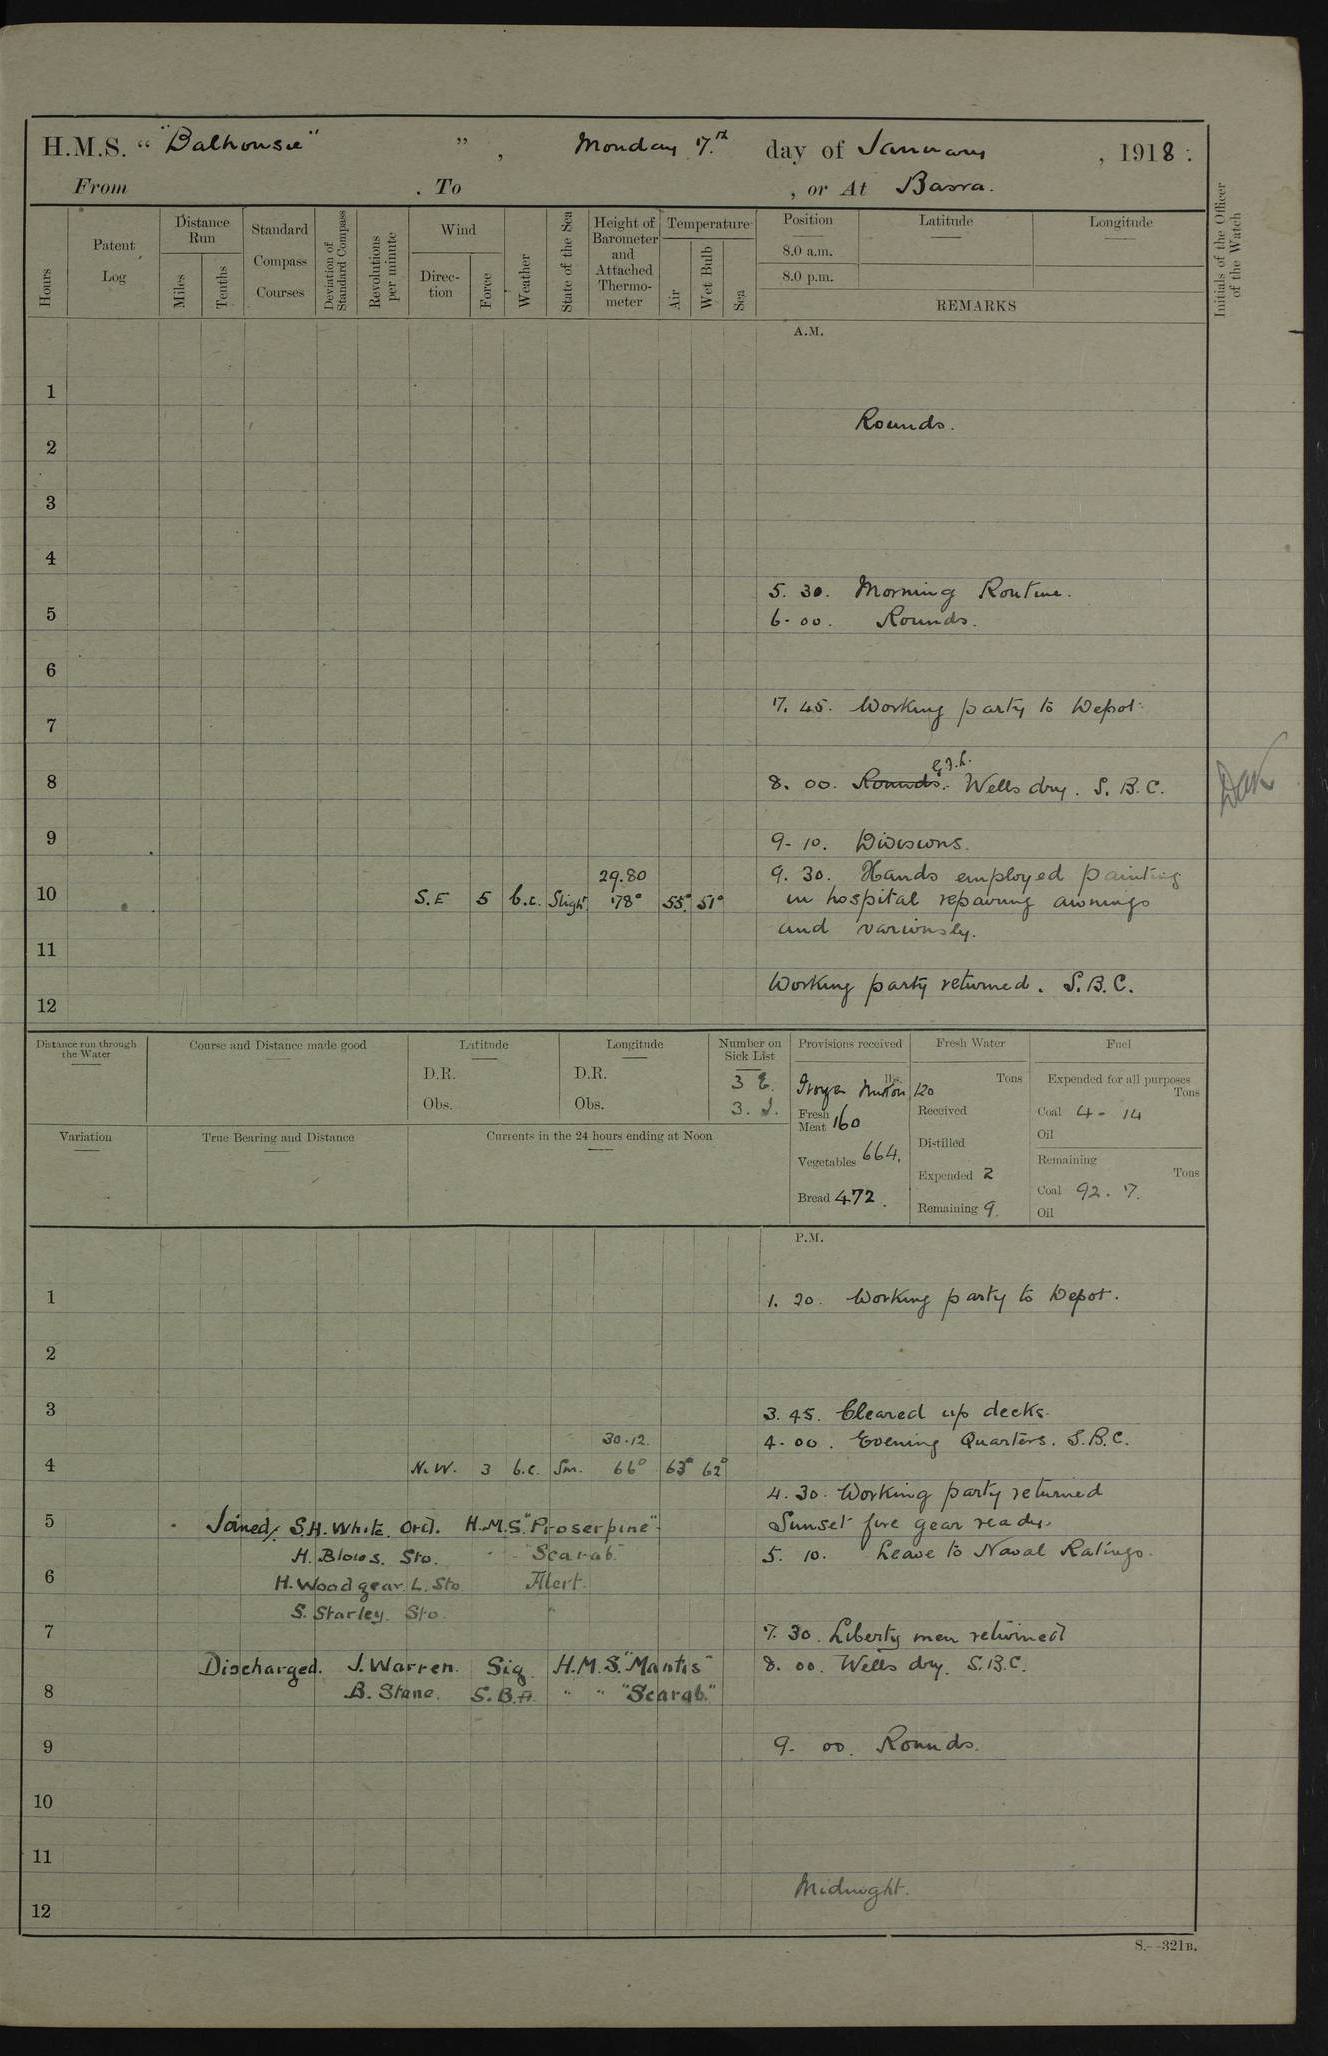 H.M.S. “ "Dalhousie" ” , Monday 7.th day of January , 1918 .
From . To , or At Basra.
Hours
Patent Log
Distance Run
Miles
Tenths
Standard Compass Courses
Deviation of Standard Compass
Revolutions per minute
Wind
Direc- tion
Force
Weather
State of the Sea
Height of Barometer and Attached Thermo- meter
Temperature
Air
Wet Bulb
Sea
Position
8.0 a.m.
8.0 p.m.
Latitude
Longitude
REMARKS
Initials of the Officer of the Watch
A.M.
1
Rounds.
2
3
4
5. 30. Morning Routine.
5
6. 00. Rounds.
6
7. 45. Working party to Depot.
7
8 8. 00. Rounds. Wells dry. S.B.C.
9 9. 10. Divisions.
29.80 9. 30. Hands employed painting
10 S.E 5 b.c. Slight 78° 55° 51° in hospital repairing awnings
and variously.
11
Working party returned. S.B.C.
12
Distance run through the Water
Course and Distance made good
Latitude
D.R.
Obs.
Longitude
D.R.
Obs.
Number on Sick List
3 E.
3. I.
Provisions received
lbs.
Frozen Mutton 120
Fresh Meat 160
Vegetables 664.
Bread 472.
Fresh Water
Tons
Received
Distilled
Expended 2
Remaining 9.
Fuel
Expended for all purposes
Tons
Coal 4 - 14
Oil
Remaining
Tons
Coal 92. 7.
Oil
Variation
True Bearing and Distance
Currents in the 24 hours ending at Noon
P.M.
1 1. 20. Working party to Depot.
2
3 3. 45. Cleared up decks.
30.12. 4. 00. Evening Quarters. S.B.C.
4 N.W. 3 b.c. Sm. 66° 63° 62°
4. 30. Working party returned
5 Joined. S.H. White. Ord. H.M.S. "Proserpine" Sunset fire gear ready.
H. Blows. Sto. " "Scarab." 5. 10. Leave to Naval Ratings.
6 H. Woodgear. L. Sto Alert.
S. Starley. Sto. "
7 7. 30. Liberty men returned
Discharged. J. Warren. Sig. H.M.S. "Mantis" 8. 00. Wells dry. S.B.C.
8 B. Stane. S.B.A. " " "Scarab."
9 9. 00. Rounds.
10
11
Midnight.
12
S.—321B.